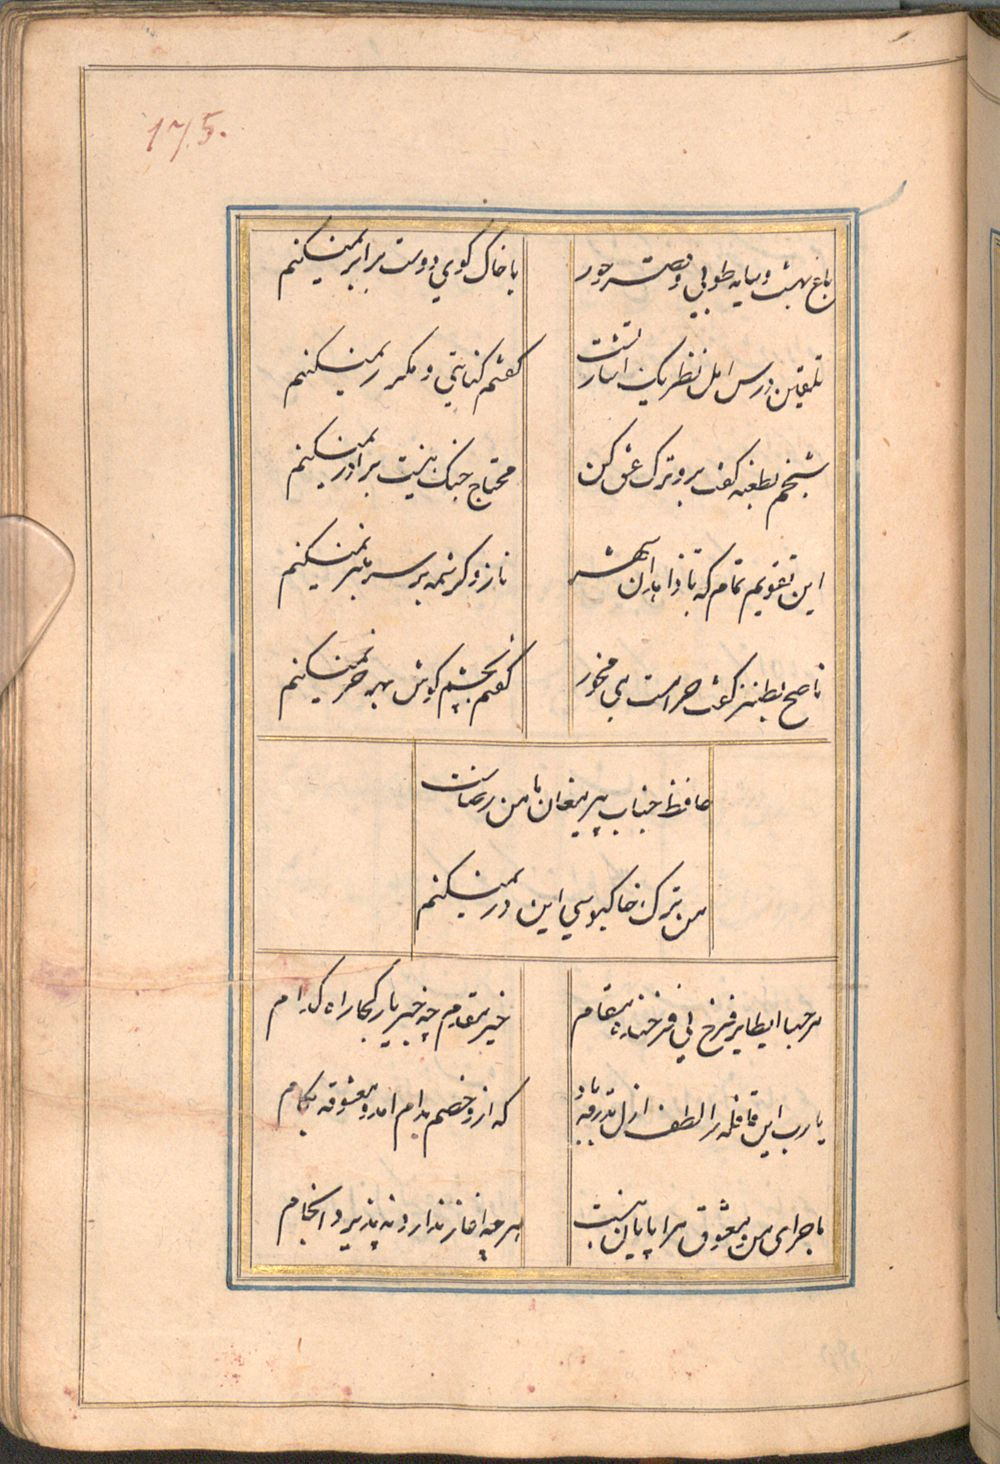 175.
باغ بهشت و سایه طوبی و قصر حور
با خاک کوی دوست برابر نمیکنم
تلقین درس اهل نظر یک اشارتست
کفتم کنایتی و مکرر نمیکنم
شیخم بطعنه کفت برو ترک عشق کن
محتاج جنک نیست برادر نمیکنم
این تقویم تمام که با شاهدان شهر
ناز و کرشمه بر سر منبر نمیکنم
ناصح بطنز کفت حرامست می مخور
کفتم بچشم کوش بهر خر نمیکنم
حافظ جناب پیر مغان مامن وفاست
من ترک خاکبوسی این در نمیکنم
مرحبا ایطایر فرخ پی فرخنده پیام
خیر مقدم چه خبر یار کجا راه کدام
یا رب این قافله را لطف ازل بدرقه باد
که ازو خصم بدام امد و معشوقه بکام
ماجرای من و معشوق مرا پایان نیست
هر چه اغاز ندارد نه پذیرد انجام